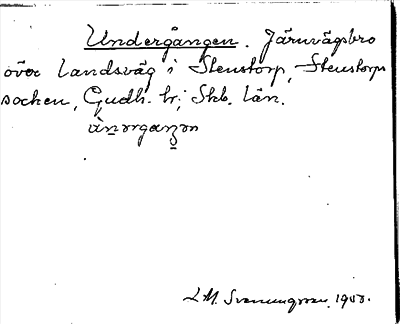 Undergången. Järnvägsbro
över landsväg i Stenstorp, Stenstorps
socken, Gudh. hr; Skb. län.
L.M. Svanungsson, 1950.